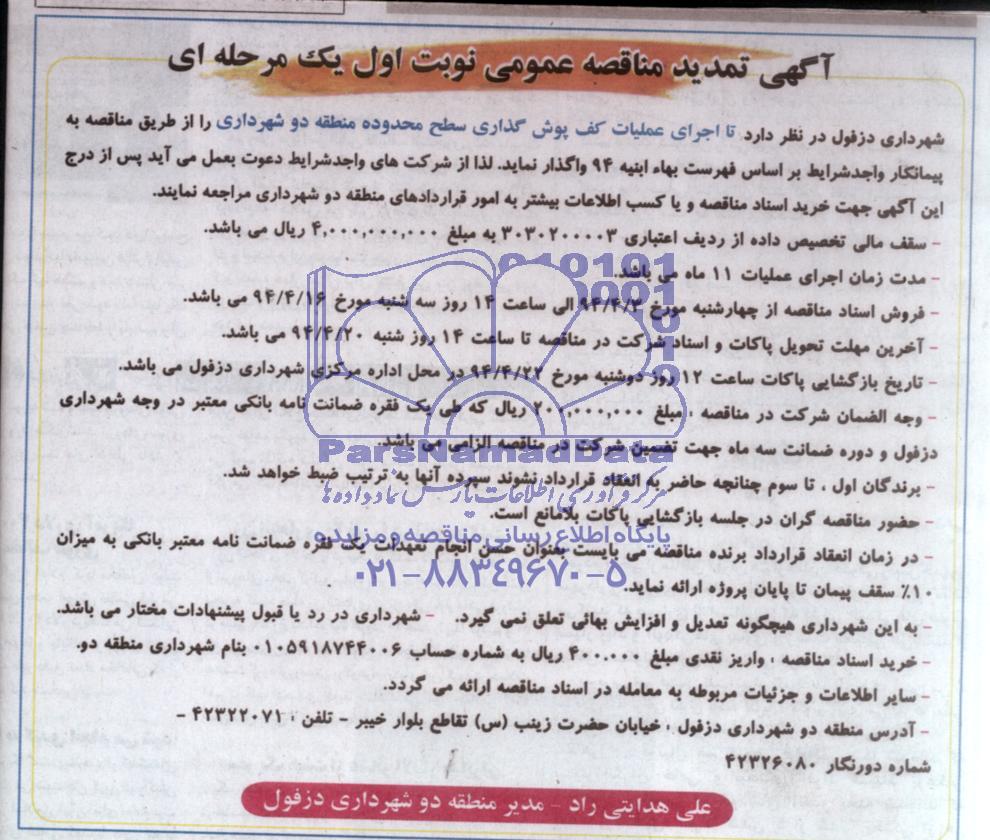 آگهی تمدید مناقصه عمومی نوبت اول یک مرحله ای
شهرداری دزفول در نظر دارد تا اجرای عملیات کف پوش گذاری سطح محدوده منطقه دو شهرداری را از طریق مناقصه به
پیمانکار واجدشرایط بر اساس فهرست بهاء ابنیه ۹۴ واگذار نماید. لذا از شرکت های واجدشرایط دعوت بعمل می آید پس از درج
این آگهی جهت خرید اسناد مناقصه و یا کسب اطلاعات بیشتر به امور قراردادهای منطقه دو شهرداری مراجعه نمایند.
- سقف مالی تخصیص داده از ردیف اعتباری ۳۰۳۰۲۰۰۰۰۳ به مبلغ ۴,۰۰۰,۰۰۰,۰۰۰ ریال می باشد.
- مدت زمان اجرای عملیات ۱۱ ماه می باشد.
- فروش اسناد مناقصه از چهارشنبه مورخ ۹۴/۴/۳ الی ساعت ۱۴ روز سه شنبه مورخ ۹۴/۴/۱۶ می باشد.
- آخرین مهلت تحویل پاکات و اسناد شرکت در مناقصه تا ساعت ۱۴ روز شنبه ۹۴/۴/۲۰ می باشد.
- تاریخ بازگشایی پاکات ساعت ۱۲ روز دوشنبه مورخ ۹۴/۴/۲۲ در محل اداره مرکزی شهرداری دزفول می باشد.
- وجه الضمان شرکت در مناقصه ، مبلغ ۲۰۰,۰۰۰,۰۰۰ ریال که طی یک فقره ضمانت نامه بانکی معتبر در وجه شهرداری
دزفول و دوره ضمانت سه ماه جهت تضمین شرکت در مناقصه الزامی می باشد.
ParsNamadData
- برندگان اول ، تا سوم چنانچه حاضر به انعقاد قرارداد نشوند سپرده آنها به ترتیب ضبط خواهد شد.
مرکز فرآوری اطلاعات پارس نماد داده ها
- حضور مناقصه گران در جلسه بازگشایی پاکات بلامانع است.
پایگاه اطلاع رسانی مناقصه و مزایده
- در زمان انعقاد قرارداد برنده مناقصه می بایست بعنوان حسن انجام تعهدات یک فقره ضمانت نامه معتبر بانکی به میزان
۰۲۱-۸۸۳۴۹۶۷۰-۵
۱۰٪ سقف پیمان تا پایان پروژه ارائه نماید.
- به این شهرداری هیچگونه تعدیل و افزایش بهائی تعلق نمی گیرد. - شهرداری در رد یا قبول پیشنهادات مختار می باشد.
- خرید اسناد مناقصه ، واریز نقدی مبلغ ۴۰۰.۰۰۰ ریال به شماره حساب ۰۱۰۵۹۱۸۷۴۴۰۰۶ بنام شهرداری منطقه دو.
- سایر اطلاعات و جزئیات مربوطه به معامله در اسناد مناقصه ارائه می گردد.
- آدرس منطقه دو شهرداری دزفول ، خیابان حضرت زینب (س) تقاطع بلوار خیبر - تلفن ، ۴۲۳۲۲۰۷۱ -
شماره دورنگار ۴۲۳۲۶۰۸۰
علی هدایتی راد - مدیر منطقه دو شهرداری دزفول